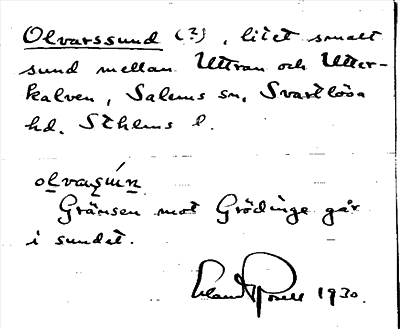 Olvarssund (?), litet smalt
sund mellan Uttran och Utter-
kalven, Salems sn, Svartlösa
hd. Sthlms l.
olvaṣún
Gränsen mot Grödinge går
i sundet.
1930.